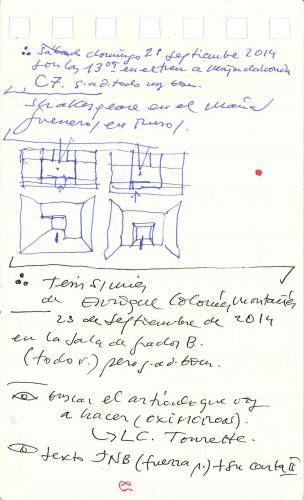 domingo 21 septiembre 2014
son las 13 en el tren a Majadahonda
C7. todo muy bien.
Shakespeare en el María
Guerrero / en ruso /.
Tesis
de Enrique Colomés, montañés
23 de septiembre de 2014
en la sala de grados B.
(todo v.) pero
buscar el artículo que voy
a hacer (oximoros).
LC. Tourette.
texto JNB (fuerza p.) + su carta II